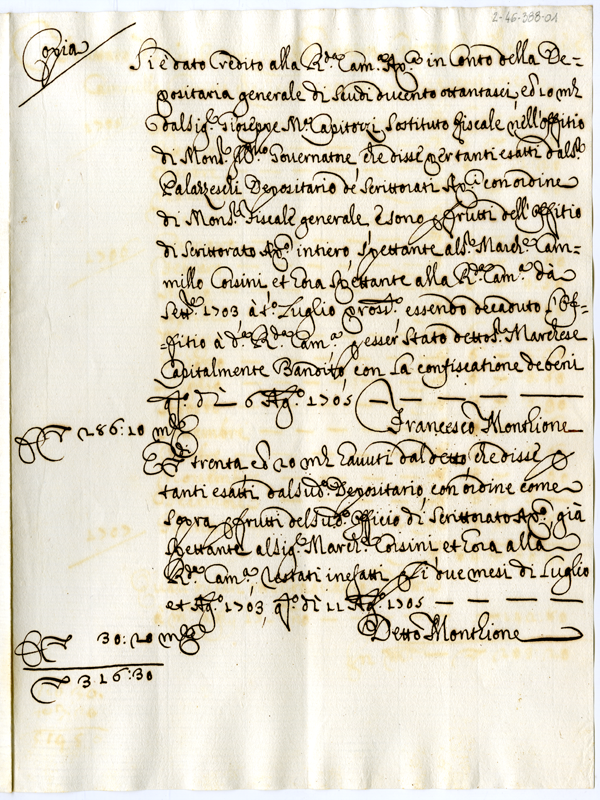 2-46-388-01
Copia
Si è dato Credito alla R.da Cam.a Ap.ca in Conto della De=
positaria generale di Scudi ducento ottantasei, ed 20 m.ta
dal Sig.e Gioseppe M.a Capitozzi Sostituto fiscale nell'offitio
di Mons.r Governatore che disse per tanti esatti dal S.r
Palazzeschi Depositario de Scrittorati Ap.ci con ordine
di Mons.r Fiscale generale, e sono p frutti dell'offitio
di Scrittorato Ap.co intiero, spettante al S. March.e Cam=
millo Corsini et hora spettante alla R.da Cam.a dà
Sett.e 1703 à t.o Luglio pross.o essendo decaduto l'Of=
=fitio à d.a R.da Cam.a p esser stato detto S. Marchese
Capitalmente Bandito, con la confiscatione de beni
q.o dì 6 Ag.o 1705
286:20 m.ta
Francesco Montlione
E di trenta ed 20 m.ta hauuti dal detto che disse p
tanti esatti dal sud.o Depositario con ordine come
sopra p frutti del sud.o officio di Scrittorato Ap.co, già
spettante al Sig.e March.e Corsini et hora alla
R.da Cam.a restati inesatti p li due mesi di Luglio
et Ag.o 1703, q.o dì 11 Ag.o 1705
30:20 m.ta
Detto Montlione
316:30